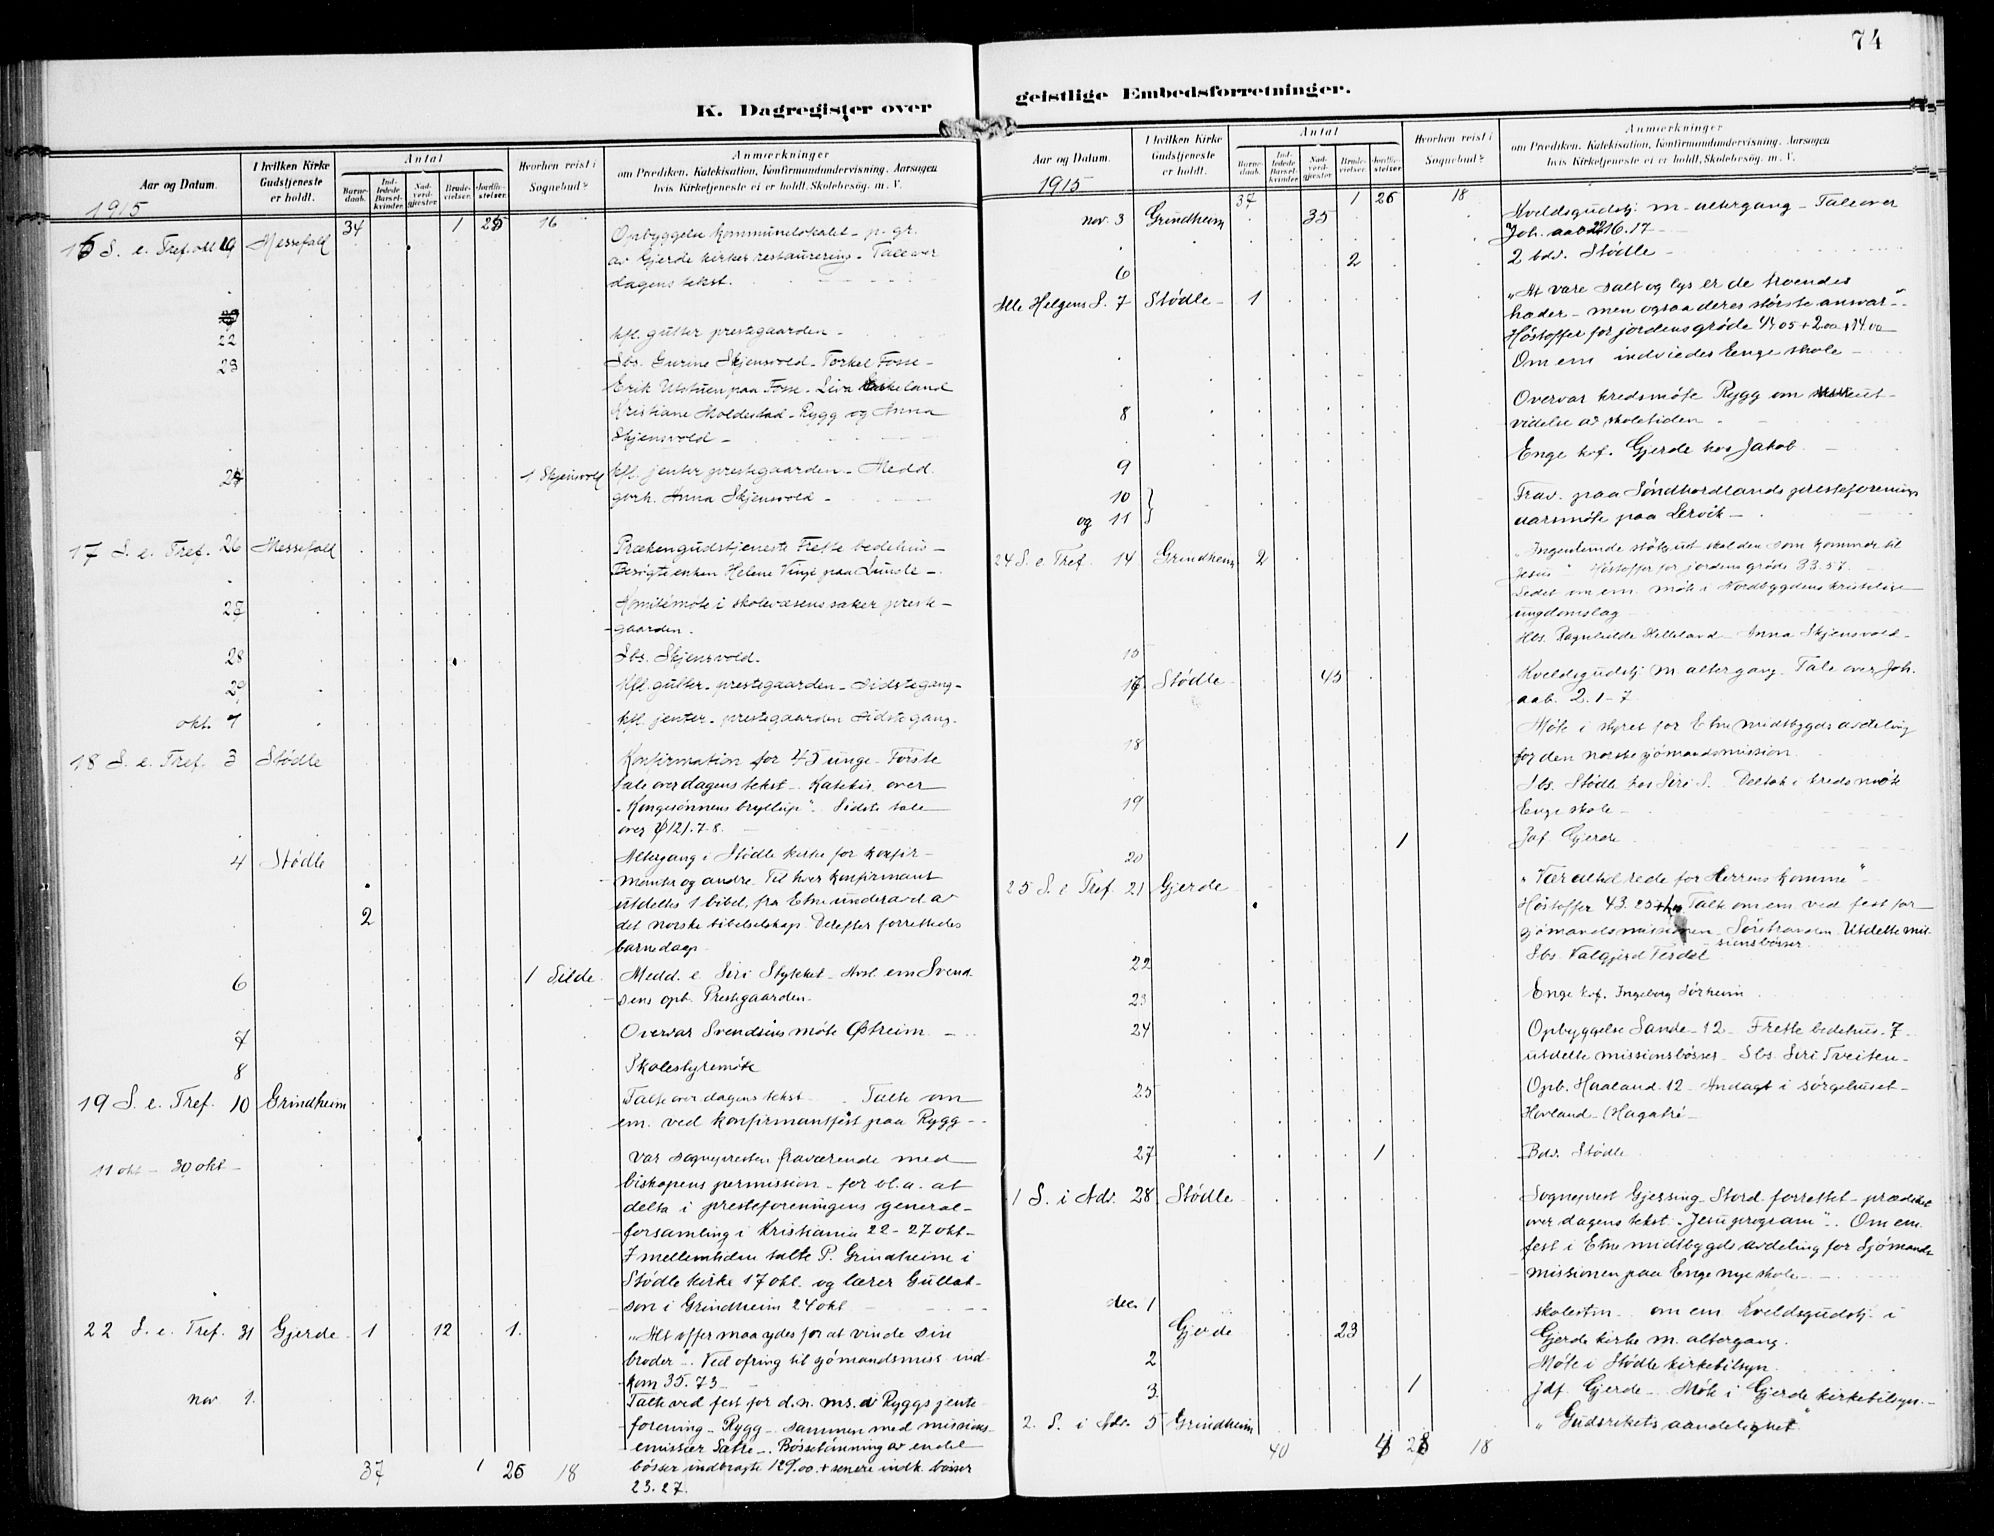 74
K. Dagregister over
geistlige Embedsforretninger.
Aar og Datum.
1915
I hvilken Kirke Gudstjeneste er holdt.
Antal
Barne-daab.
Ind-ledede Barsel-kvinder.
Nad-verd-gjester.
Brude-vielser.
Jordfæ-stelser.
Hvorhen reist i Sognebud?
Anmærkninger
om Prædiken, Katekisation, Konfirmandundervisning, Aarsagen
hvis Kirketjeneste ei er holdt, Skolebesøg. m. V.
34 1 25 16
16 S. e. Tref. 19 Messefald Opbyggelse kommunelokalet - p. gr.
av Gjerde kirkes restaurering - Tale over
dagens tekst.
22 kfl. gutter prestegaarden -
23 Sbs. Gurine Skjensvold - Torkel Fosse -
Erik Utstuen paa Fosse - Liva
Kristiane Moldestad - Rygg og Anna
Skjensvold -
24 1 Skjensvold kfl. jenter prestegaarden - Medd.
Anna Skjensvold -
17 S. e. Tref. 26 Messefald Prækengudstjeneste Frette bedehus -
Besøgte enken Helene Vinje paa Lunde -
27 Komitémöte i skolevæsens saker preste-
gaarden.
28 Sbs. Skjensvold.
29 kfl. gutter - prestegaarden - sidste gang -
okt. 1 kfl. jenter - prestegaarden sidste gang.
18 S. e. Tref. 3 Stødle Konfirmation for 45 unge - Første
tale over dagens tekst - Katekis. over
"Kongesønnens bryllup" - Sidste tale
over ψ 121. 7-8.
4 Stødle Altergang i Stødle kirke for konfir-
manter og andre. Til hver konfirmant
utdeltes 1 bibel, fra Etne underavd. av
2 det norske bibelselskap. Derefter forrettedes
barnedaap.
6 1 Silde. Medd. e. Siri Stykket - em Svend-
sens opb. Prestgaarden.
7 Overvar Svendsens møte Østreim -
8 Skolestyremøte
19 S. e. Tref. 10 Grindheim Talte over dagens tekst - Talte om
em. ved konfirmantfest paa Rygg -
11 okt - 30 okt - Var sognepresten fraværende med
biskopens permission - for bl. a. at
delta i presteforeningens general-
forsamling i Kristiania 22 - 27 okt -
I mellemtiden talte P. Grindheim i
Stødle kirke 17 okt. og lærer Gullat-
son i Grindheim 24 okt -
22 S. e. Tref. 31 Gjerde 1 12 1. "Alt offer maa ydes for at vinde sin
broder". Ved ofring til sjömandsmiss. ind-
kom 35.73
nov 1. Talte ved fest for d. n. ms. Ryggs jente-
forening - Rygg - sammen med missions-
emissær Sætre - Bøssetömning av endel
37 1 26 18 bøsser indbragte 129.00 + senere indk. bøsser
23.27.
Aar og Datum.
1915
I hvilken Kirke Gudstjeneste er holdt.
Antal
Barne-daab.
Ind-ledede Barsel-kvinder.
Nad-verd-gjester.
Brude-vielser.
Jordfæ-stelser.
Hvorhen reist i Sognebud?
Anmærkninger
om Prædiken, Katekisation, Konfirmandundervisning, Aarsagen
hvis Kirketjeneste ei er holdt, Skolebesøg. m. V.
37 1 26 18
nov. 3 Grindheim 35 Kveldsgudstj. m. altergang - Tale over
Joh. aab 22 16.17 -
6 2 2 bdv. Stødle -
Alle Helgens S. 7 Stødle - 1 "At være salt og lys er de troendes
hæder - men ogsaa deres største ansvar" -
Høstoffer for jordens grøde 44.05 + 2.00 + 14.00
Om em indviedes Enge skole -
8 Overvar kredsmöte Rygg om ut-
videlse av skoletiden
9 Enge kof. Gjerde hos Jakob
10 } Frav. paa Søndhordlands presteforenings
og 11 aarsmøte paa Lervik -
24 S. e. Tref 14 Grindheim 2 "Ingenlunde støtes ut skal den som kommer til
Jesus" - Høstoffer for jordens grøde 33.57. -
Ledet om em. møte i Nordbygdens kristelige
ungdomslag -
15 Hbs. Ragnhilde Helleland - Anna Skjensvold -
17 Stødle - 45 Kveldsgudstj. m altergang. Tale over Joh.
aab. 2. 1-7
18 Møte i styret for Etne midtbygds avdeling
for den norske sjömandsmission
19 Sbs. Stødle hos Siri S. Deltok i kredsmøte
Enge skole -
20 1 Jof. Gjerde
25 S. e Tref. 21 Gjerde - "Vær altid rede for Herrens komme" -
Høstoffer 43.25 Talte om em. ved fest for
sjömandsmissionen Sørstranden. Utdelte mis-
sionsbøsser.
22 Sbs. Valgjerd Tesdal
23 Enge kof. Ingeborg Sørheim
24 Opbyggelse Sande - 12 - Frette bedehus - 7 -
utdelte missionsbøsser - Sbs. Siri Tveiten -
25 Opb. Haaland 12 - Andagt i sørgehuset -
Hovland - (Hagatræ -
27 1 Bdv. Stødle
1 S. i Adv. 28. Stødle - Sogneprest Gjessing - Stord forrettet - prædiket
over dagens tekst - "Jesu program". Om em.
fest i Etne midtbygds avdeling for Sjömands-
missionen paa Enge nye skole -
dec. 1 skolestm. - om em. Kveldsgudstj. i
Gjerde 23 Gjerde kirke m. altergang.
2 Möte i Stødle kirketilsyn.
3. 1 Jdf. Gjerde - Møte i Gjerde kirketilsyn. -
2. S. i Adv. 5 Grindheim "Gudsrikets aandelighet"
40 4 28 18